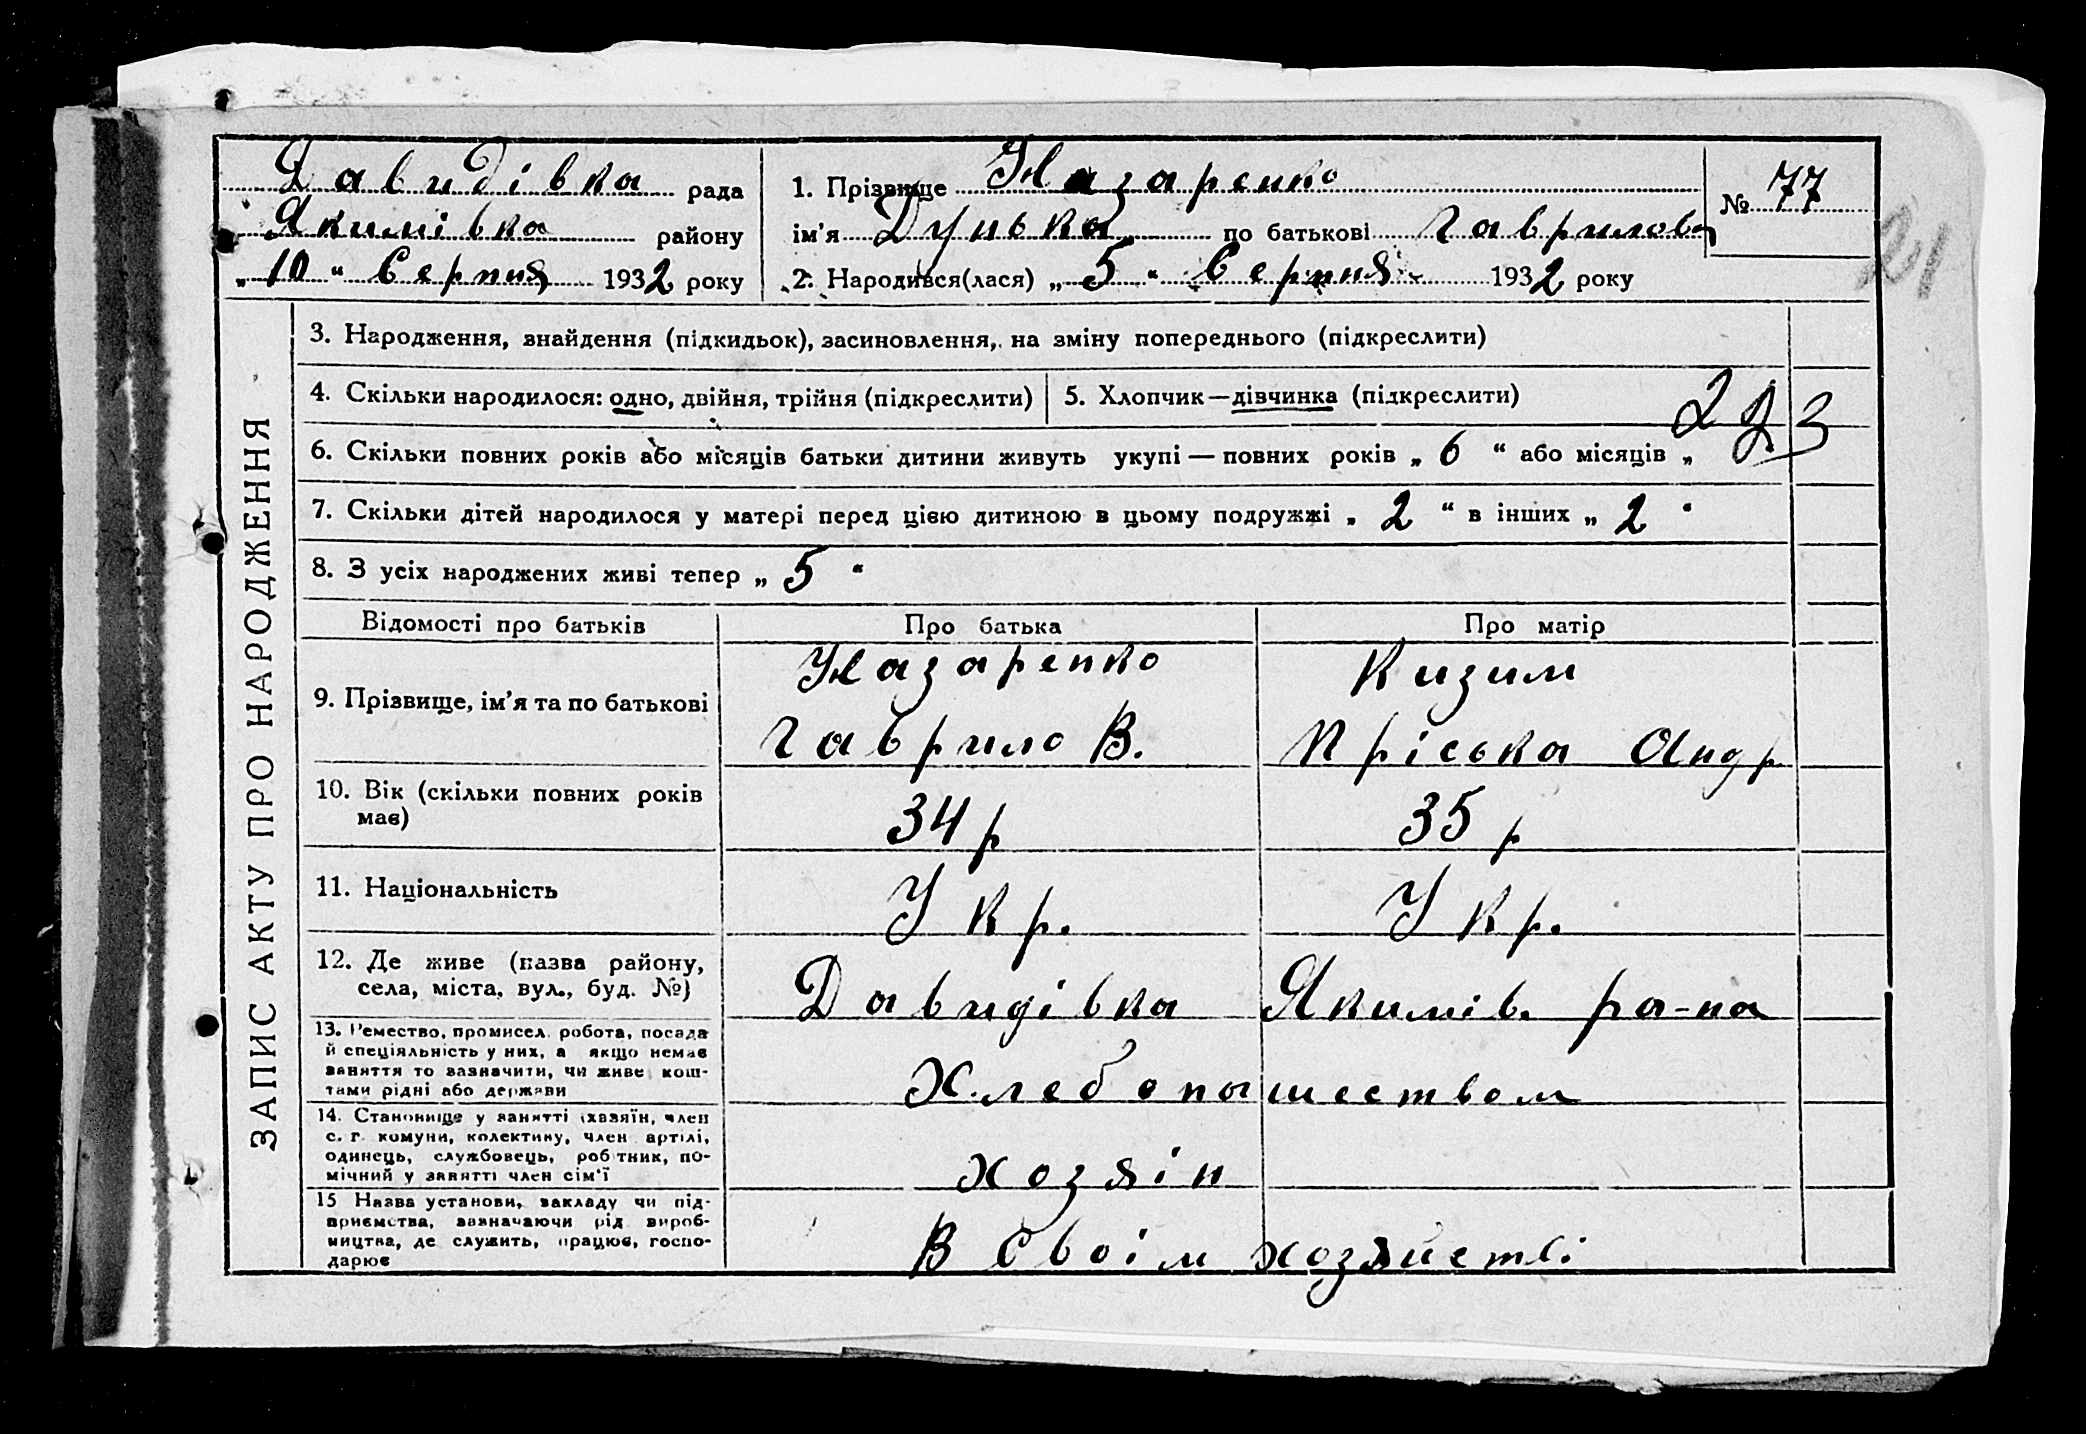 Давидівка рада
Якимівка району
„ 10 “ Серпня 1932 року
1. Прізвище Назаренко
ім'я Дунька по батькові Гаврилов.
2. Народився(лася) „ 5 “ Серпня 1932 року
№ 77
21
ЗАПИС АКТУ ПРО НАРОДЖЕННЯ
3. Народження, знайдення (підкидьок), засиновлення, на зміну попереднього (підкреслити)
4. Скільки народилося: одно, двійня, трійня (підкреслити)
5. Хлопчик—дівчинка (підкреслити)
6. Скільки повних років або місяців батьки дитини живуть укупі — повних років „ 6 “ або місяців „
7. Скільки дітей народилося у матері перед цією дитиною в цьому подружжі „ 2 “ в інших „ 2 “
8. З усіх народжених живі тепер „ 5 “
Відомості про батьків Про батька Про матір
9. Прізвище, ім'я та по батькові
Назаренко
Гаврило В.
Кизим
Пріська Андр.
10. Вік (скільки повних років
має)
34 р
35 р
11. Національність
Укр.
Укр.
12. Де живе (назва району,
села, міста, вул., буд. №)
Давидівка Якимів. ра-на
13. Ремество, промисел, робота, посада
й спеціяльність у них, а якщо немає
заняття то зазначити, чи живе кош-
тами рідні або держави
Хлебопашеством
14. Становище у занятті (хазяїн, член
с. г. комуни, колективу, член артілі,
одинець, службовець, робітник, по-
мічний у занятті член сім'ї
хозяін
15 Назва установи, закладу чи під-
приємства, зазначаючи рід вироб-
ництва, де служить, працює, госпо-
дарює
В Своім хозяйстві